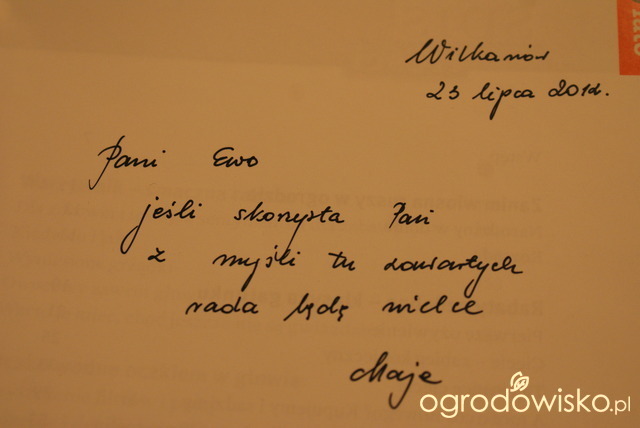 Wilkanów
23 lipca 2012.
Pani Ewo
jeśli skorzysta Pani
z myśli tu zawartych
rada będę wielce
Maja
ogrodowisko.pl